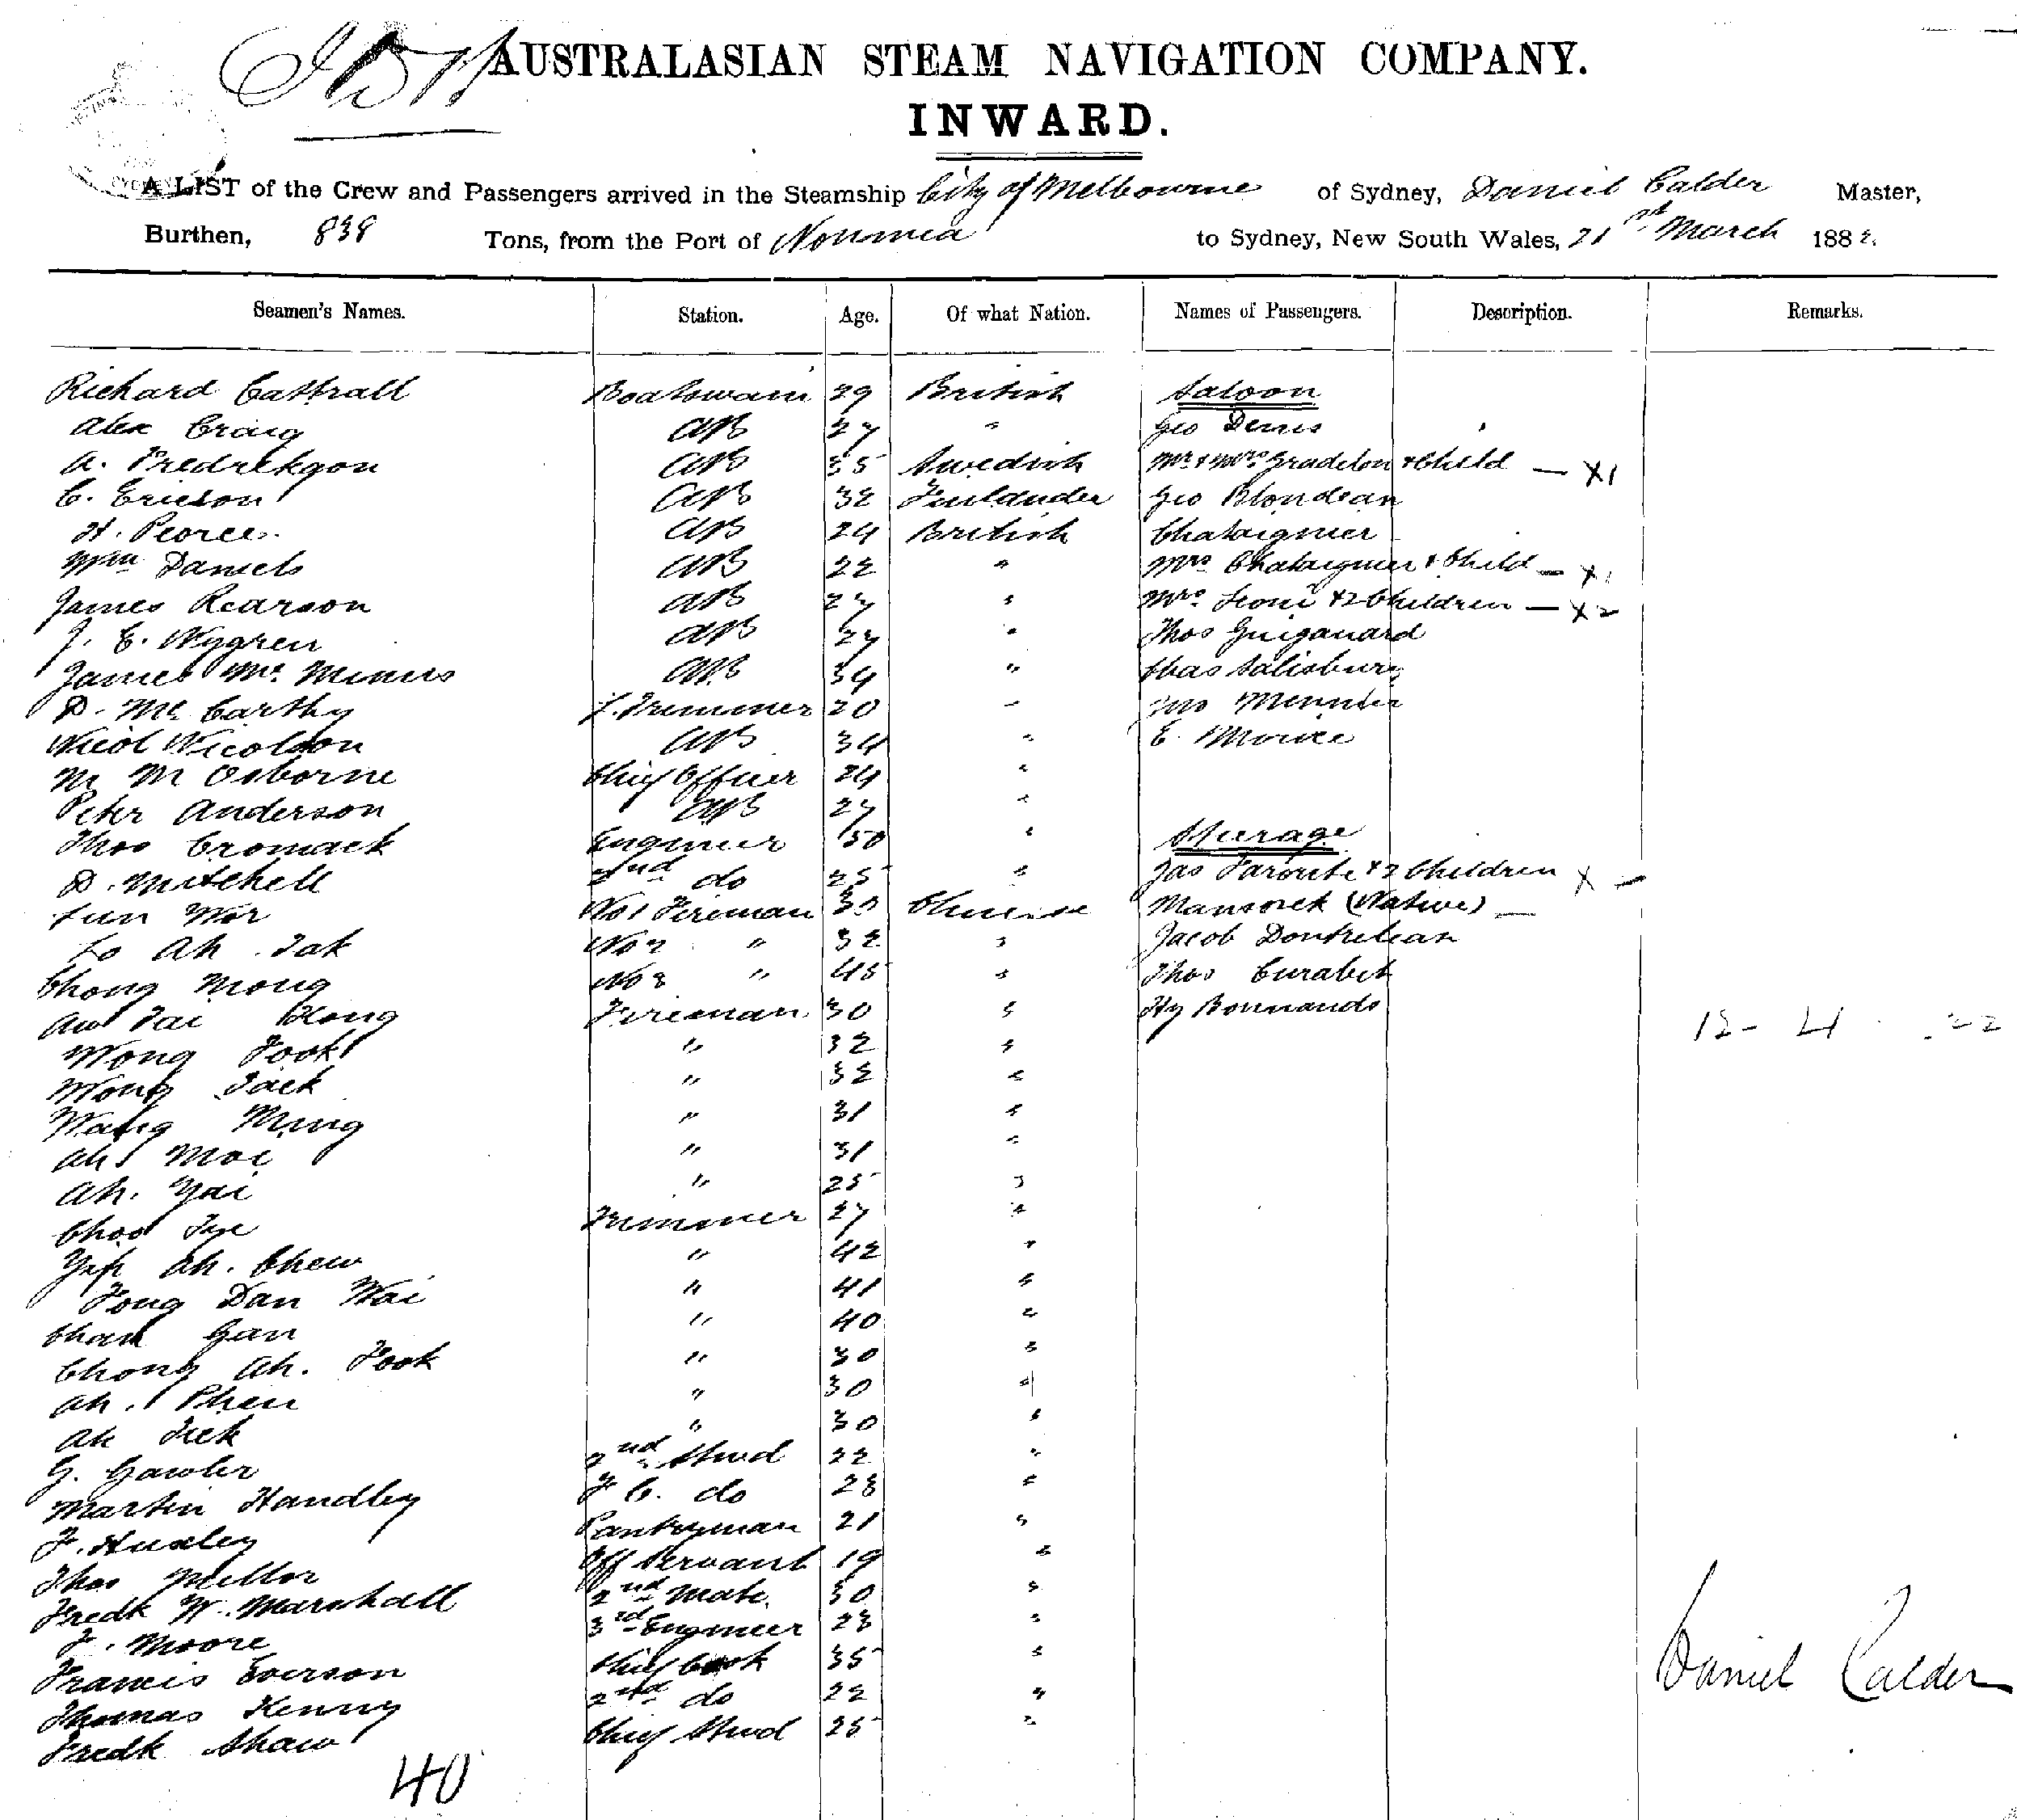 AUSTRALASIAN STEAM NAVIGATION COMPANY.
INWARD.
A LIST of the Crew and Passengers arrived in the Steamship City of Melbourne of Sydney, Daniel Calder Master,
Burthen, 838 Tons, from the Port of Noumea to Sydney, New South Wales, 21st March 1882.
Seamen's Names. Station. Age. Of what Nation. Names of Passengers. Description. Remarks.
Richard Cattrall Boatswain 29 British Saloon
Alex Craig AB 27 " Geo Denis
A. Fredrikson AB 35 Swedish Mr & Mrs Gradelon & Child — X1
C. Ericson AB 32 Finlander Geo Blondean
H. Peorce AB 24 British Chataignier
Wm Daniels AB 22 " Mrs Chataignier & Child — X1
James Rearson AB 27 " Mrs Leoni & 2 Children — X2
J. E. Nygren AB 27 " Thos Guiganard
James Mc Minnis AB 34 " Chas Salisbury
D. Mc Carthy F. Trimmer 20 " Meunier
Nicol Nicolson AB 34 " E. Morice
M M Osborne Chief Officer 24 "
Peter Anderson AB 27 "
Thos Cromack Engineer 50 " Steerage
D. Mitchell 2nd do 25 " Jas Farorite & 2 Children X —
Sun Wor No 1 Fireman 30 Chinese Mansonek (Native) —
Lo Ah Tak No 2 " 32 " Jacob Dontrelean
Chong Mong No 3 " 45 " Thos Curabet
Aw Tai Kong Fireman 30 " Hy Bonnando
12 - 4 22
Wong Fook " 32 "
Wong Jack " 32 "
Wang Ming " 31 "
Ah Moi " 31 "
Ah. Yai " 25 "
Choo Tye Trimmer 27 "
Yep Ah. Chew " 42 "
Fong Dan Wai " 41 "
Chan Gan " 40 "
Chong Ah. Fook " 30 "
Ah. Phen " 30 "
Ah Tick " 30 "
G. Gawler 2nd Stwd 22 "
Martin Handley F. C. do 28 "
F. Huxley Pantryman 21 "
Thos Mellor Off Servant 19 "
Fredk W. Marshall 2nd Mate. 30 "
F. Moore 3rd Engineer 23 "
Francis Everson Chief Cook 35 "
Thomas Kenny 2nd do 22 "
Fredk Shaw Chief Stwd 25 "
Daniel Calder
40